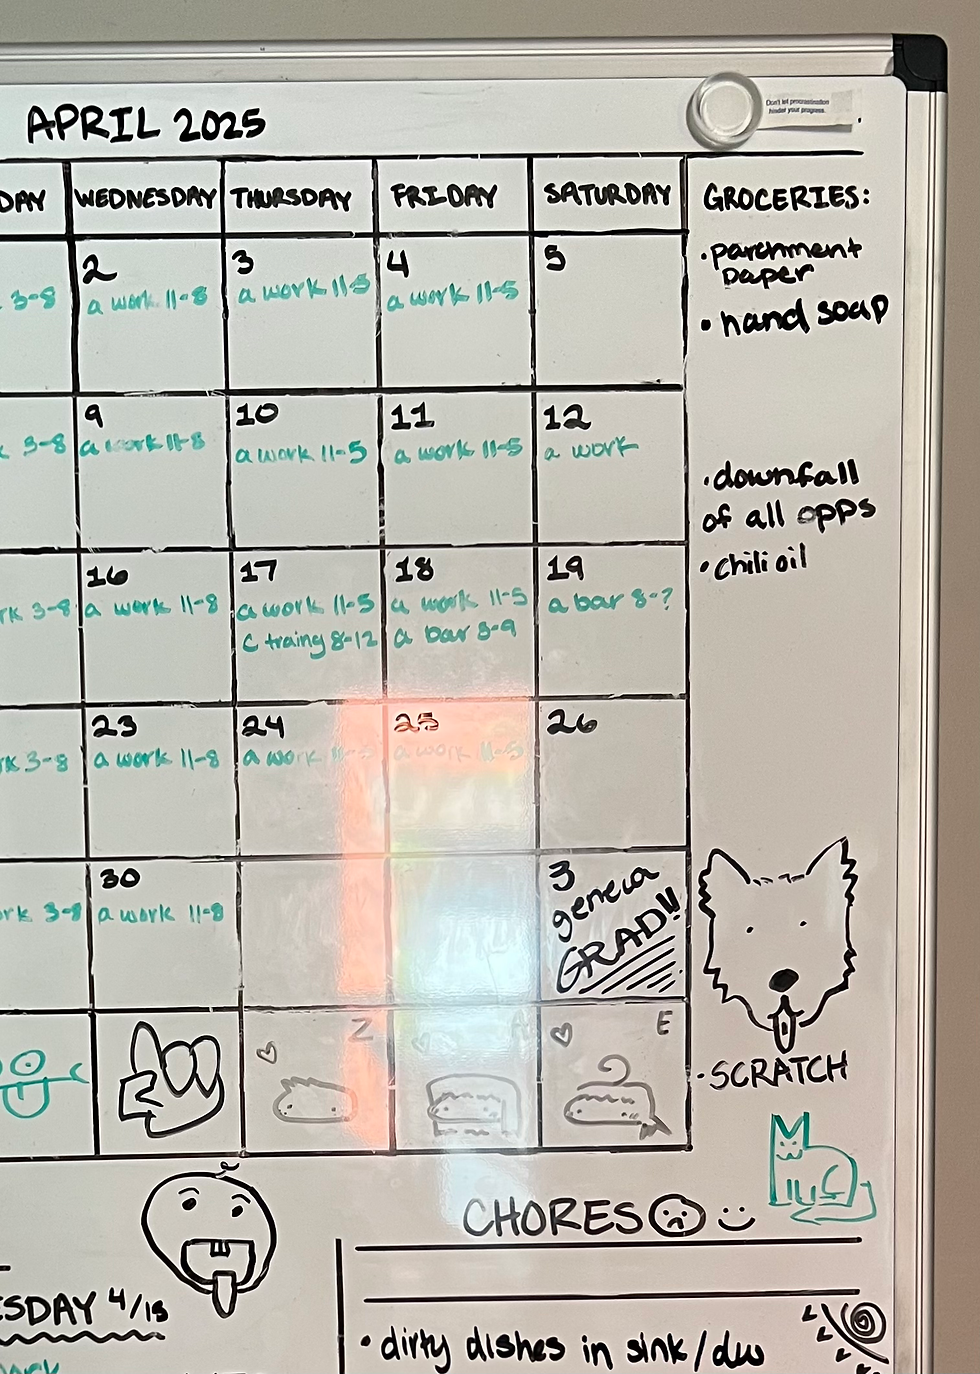 APRIL 2025
Don't let procrastination
hinder your progress.
DAY WEDNESDAY THURSDAY FRIDAY SATURDAY
GROCERIES:
• parchment
paper
• hand soap
• downfall
of all opps
• chili oil
2 3 4 5
3-8 a work 11-8 a work 11-5 a work 11-5
9 10 11 12
3-8 a work 11-8 a work 11-5 a work 11-5 a work
16 17 18 19
rk 3-8 a work 11-8 a work 11-5 a work 11-5 a bar 8-?
c traing 8-12 a bar 3-9
23 24 25 26
rk 3-8 a work 11-8 a work 11-5 a work 11-5
30 3
geneva
GRAD!!
ork 3-8 a work 11-8
Z A E
• SCRATCH
CHORES
ESDAY 4/15
work
• dirty dishes in sink/dw